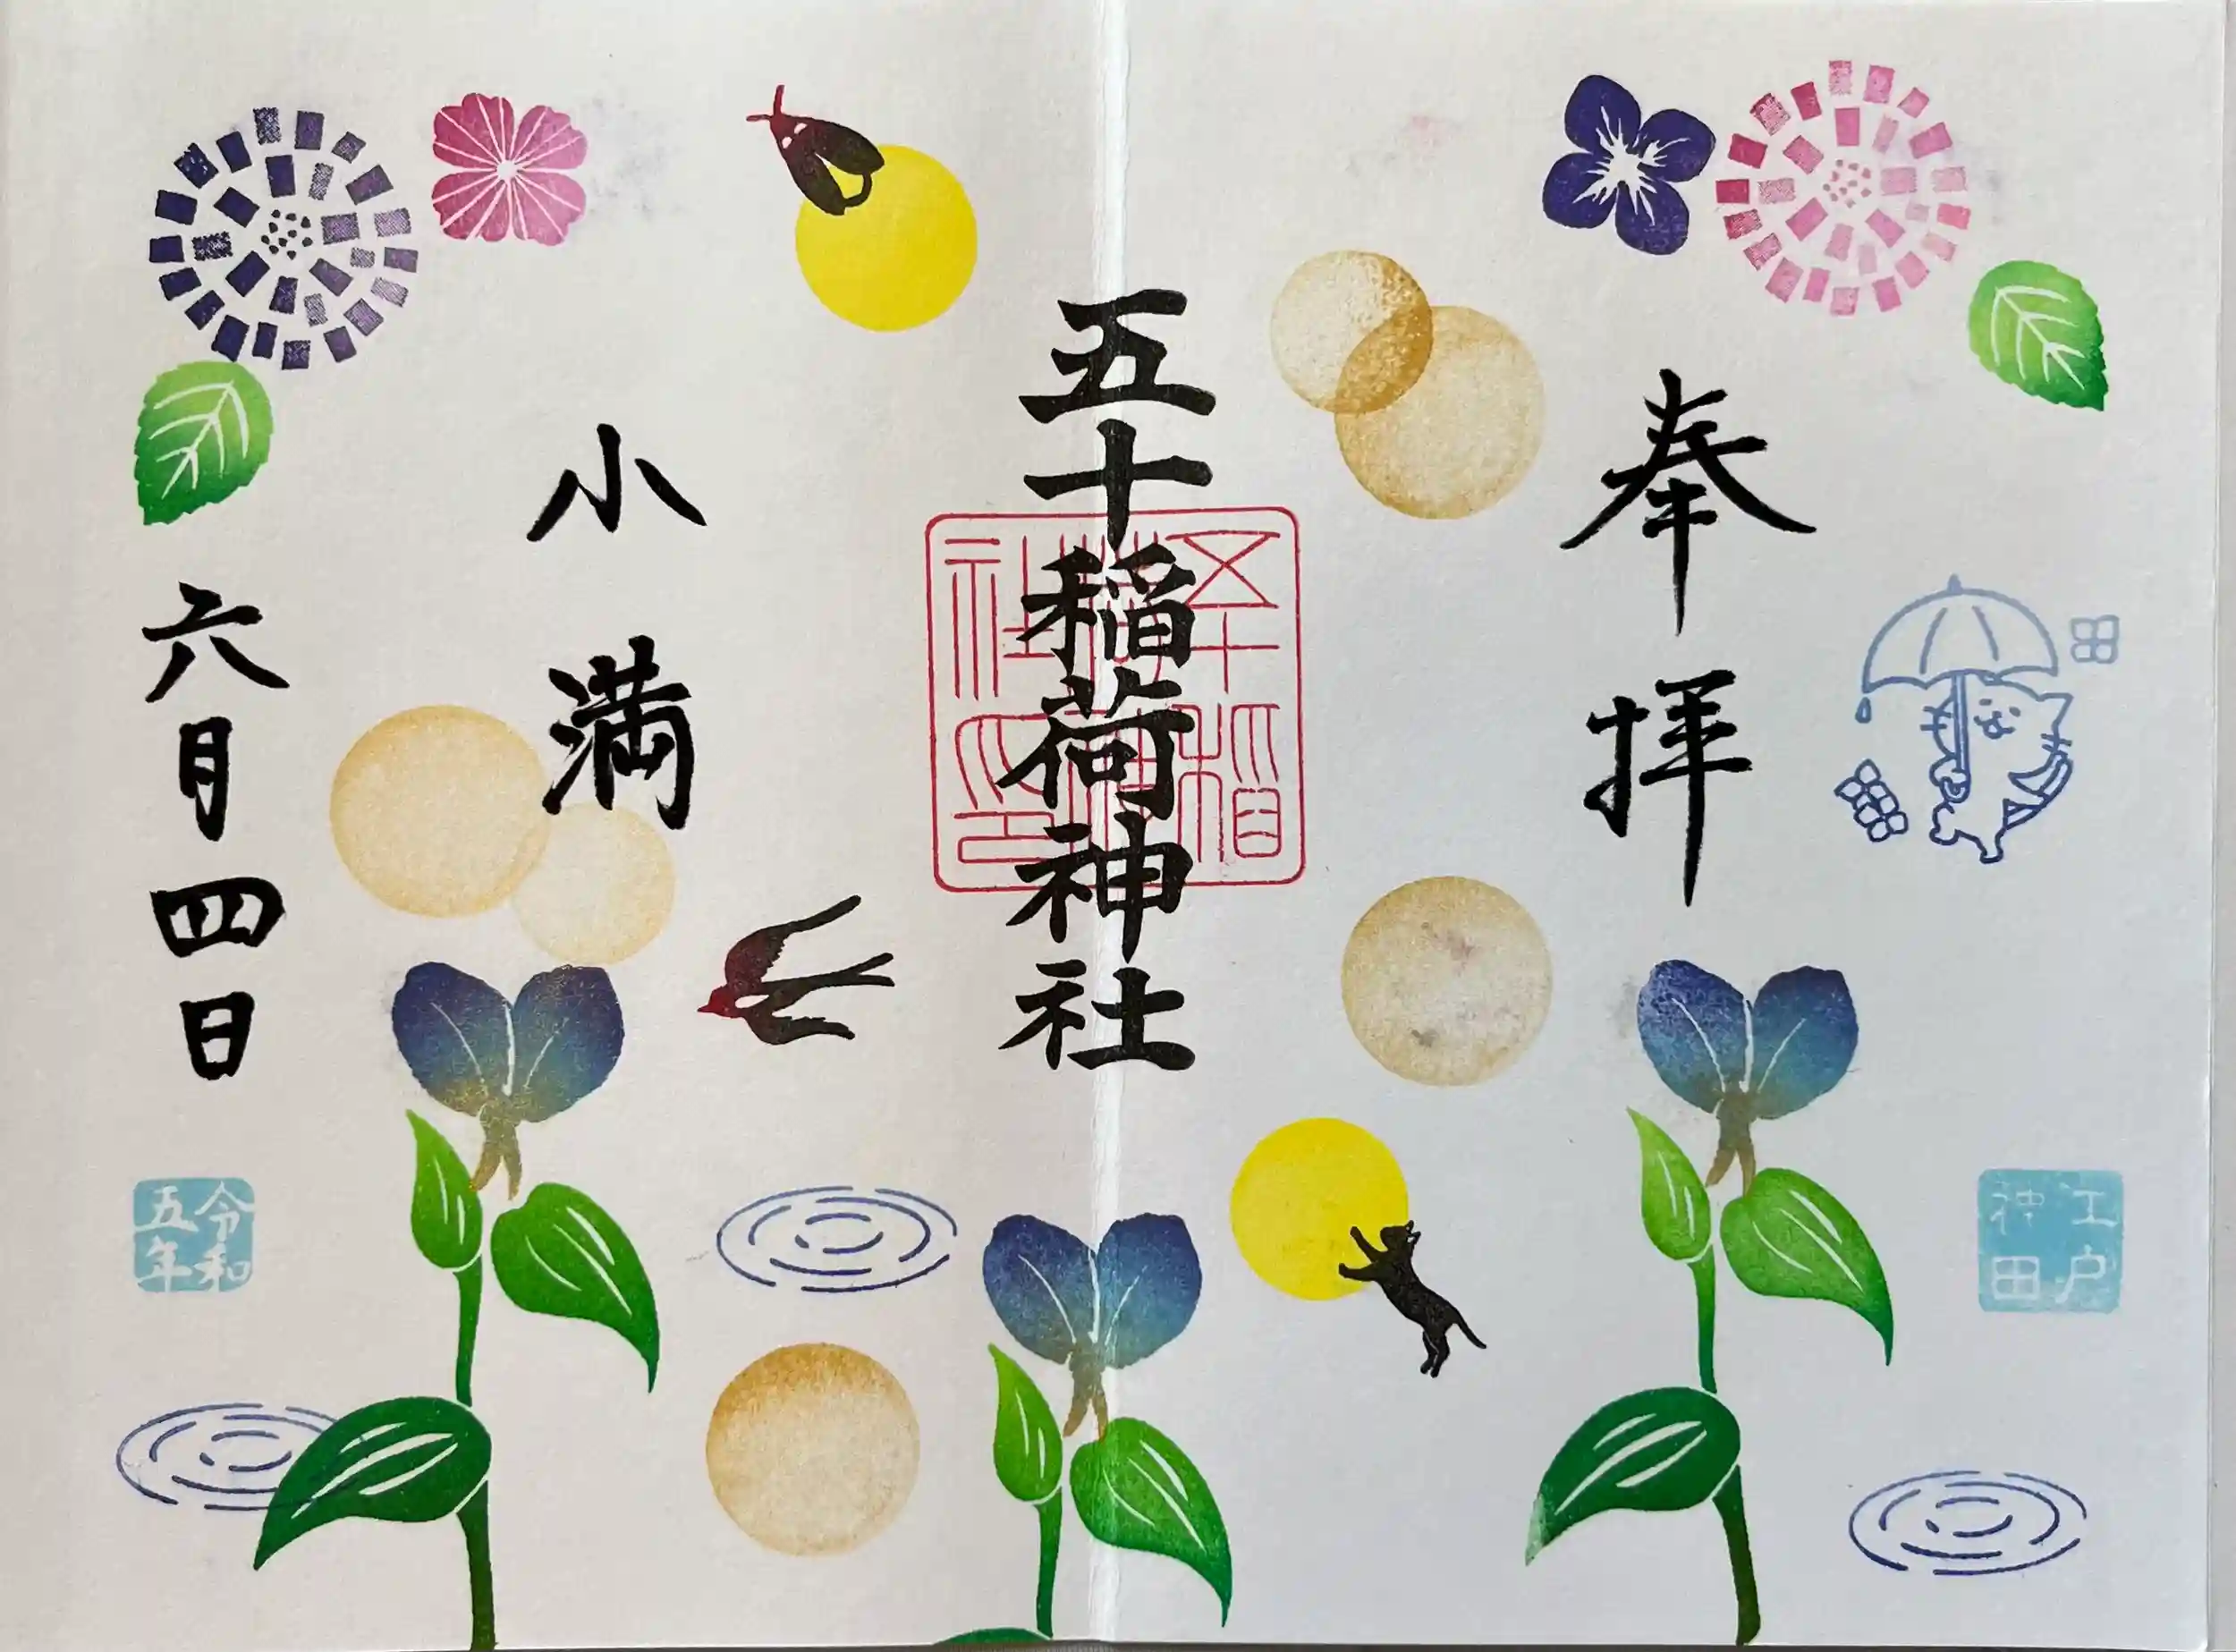 奉拝
江戸
神田
五十稲荷神社
五十稲
荷神
社之印
小満
六月四日
令和
五年